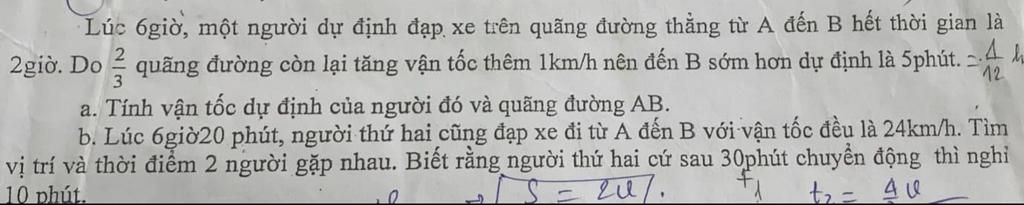 Lúc 6giờ, một người dự định đạp xe trên quãng đường thẳng từ A đến B hết thời gian là
2giờ. Do 2/3 quãng đường còn lại tăng vận tốc thêm 1km/h nên đến B sớm hơn dự định là 5phút. = 1/12 h
a. Tính vận tốc dự định của người đó và quãng đường AB.
b. Lúc 6giờ20 phút, người thứ hai cũng đạp xe đi từ A đến B với vận tốc đều là 24km/h. Tìm
vị trí và thời điểm 2 người gặp nhau. Biết rằng người thứ hai cứ sau 30phút chuyển động thì nghỉ
10 phút. → S = 2v t1 t2 = 4v